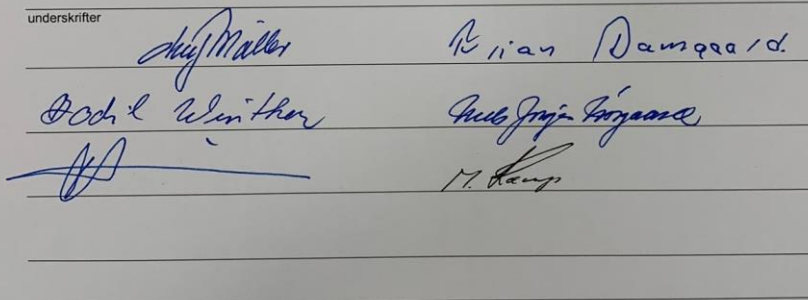 underskrifter
Møller Brian Damgaard.
Bodil Winther Niels Jørgen Nørgaard
M. Kamp